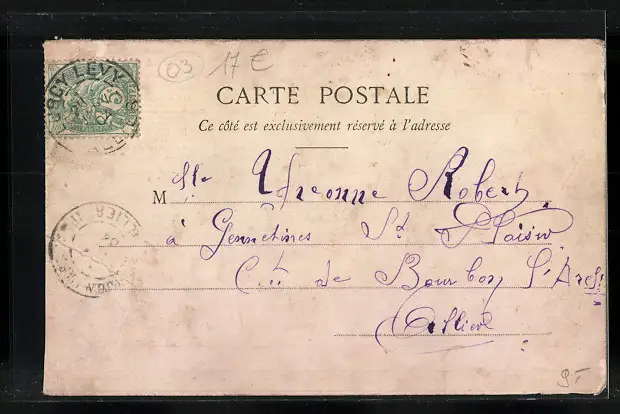 03 17 €
CARTE POSTALE
Ce côté est exclusivement réservé à l'adresse
RCY LEVY
5
M lle Yvonne Robert
à Gennetines St Plaisir
Cton de Bourbon l'Arch
Allier
ALLIER
9-